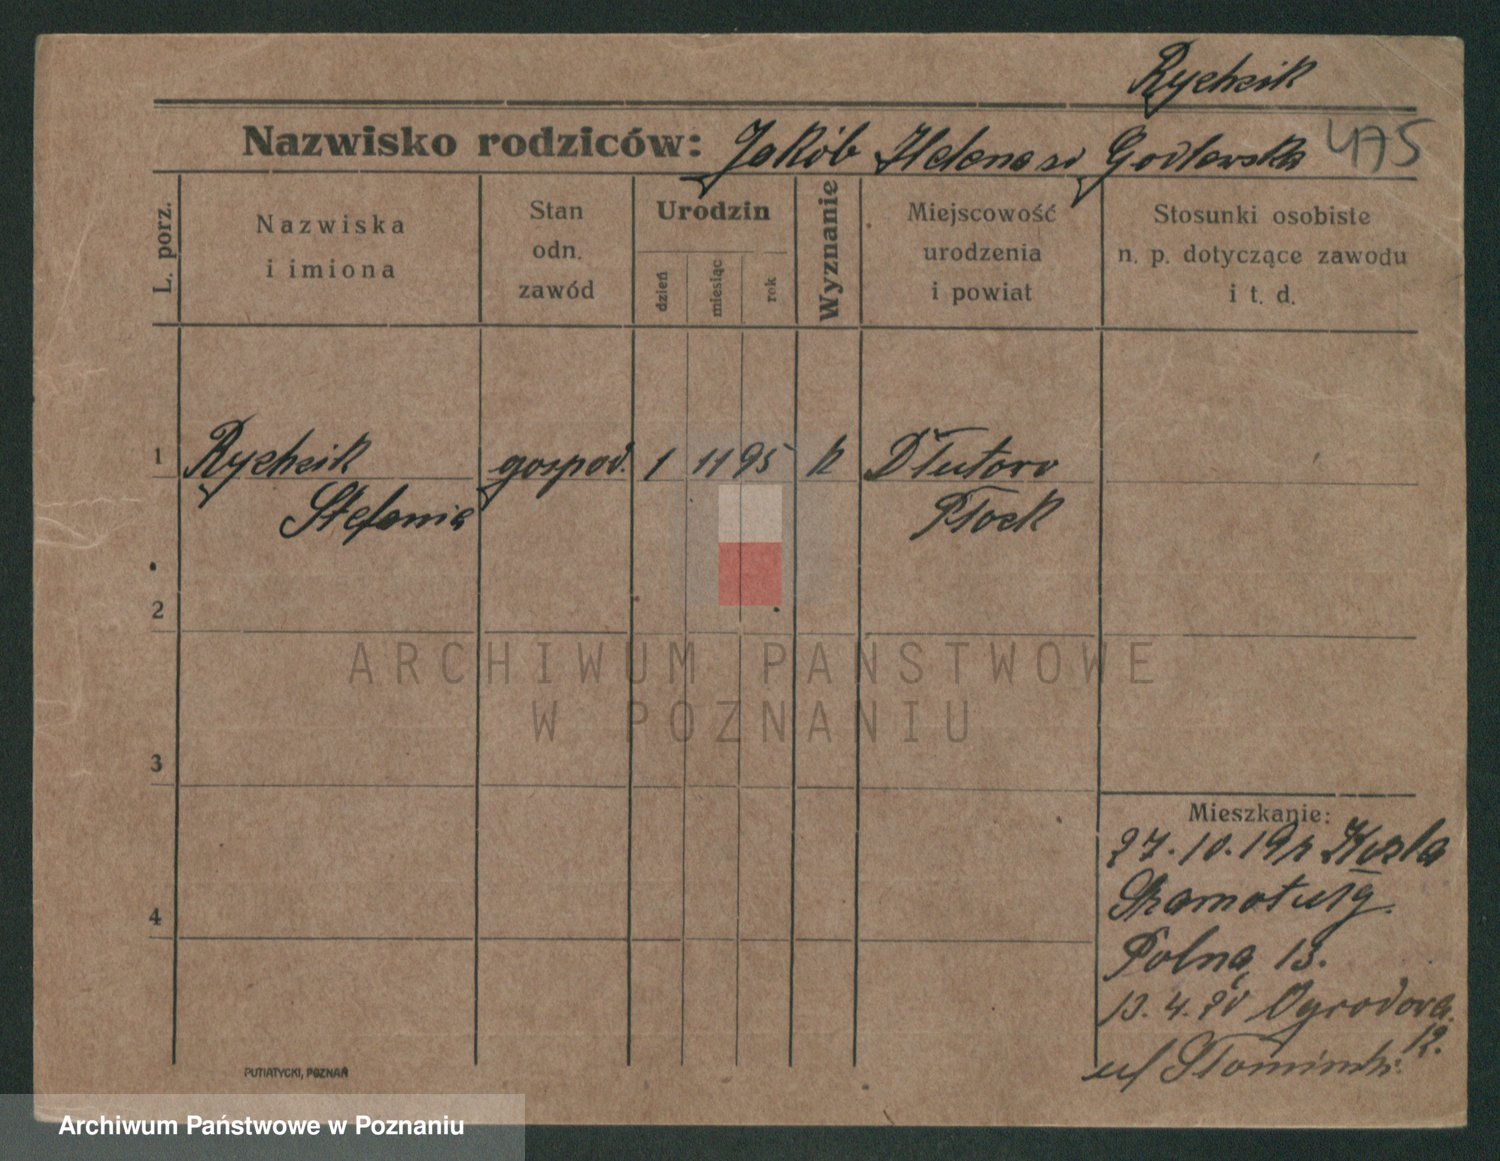 Rychcik
Nazwisko rodziców: Jakób Helena Godlewska 475
L. porz.
Nazwiska
i imiona
Stan
odn.
zawód
Urodzin
dzień
miesiąc
rok
Wyznanie
Miejscowość
urodzenia
i powiat
Stosunki osobiste
n. p. dotyczące zawodu
i t. d.
1 Rychcik gospod. 1 11 95 k
Stefania Płock
2
ARCHIWUM PAŃSTWOWE
W POZNANIU
3
Mieszkanie:
27.10.19
4
Polna 13.
13.4.20 Ogrodowa
12.
u/
PUTIATYCKI, POZNAŃ
Archiwum Państwowe w Poznaniu